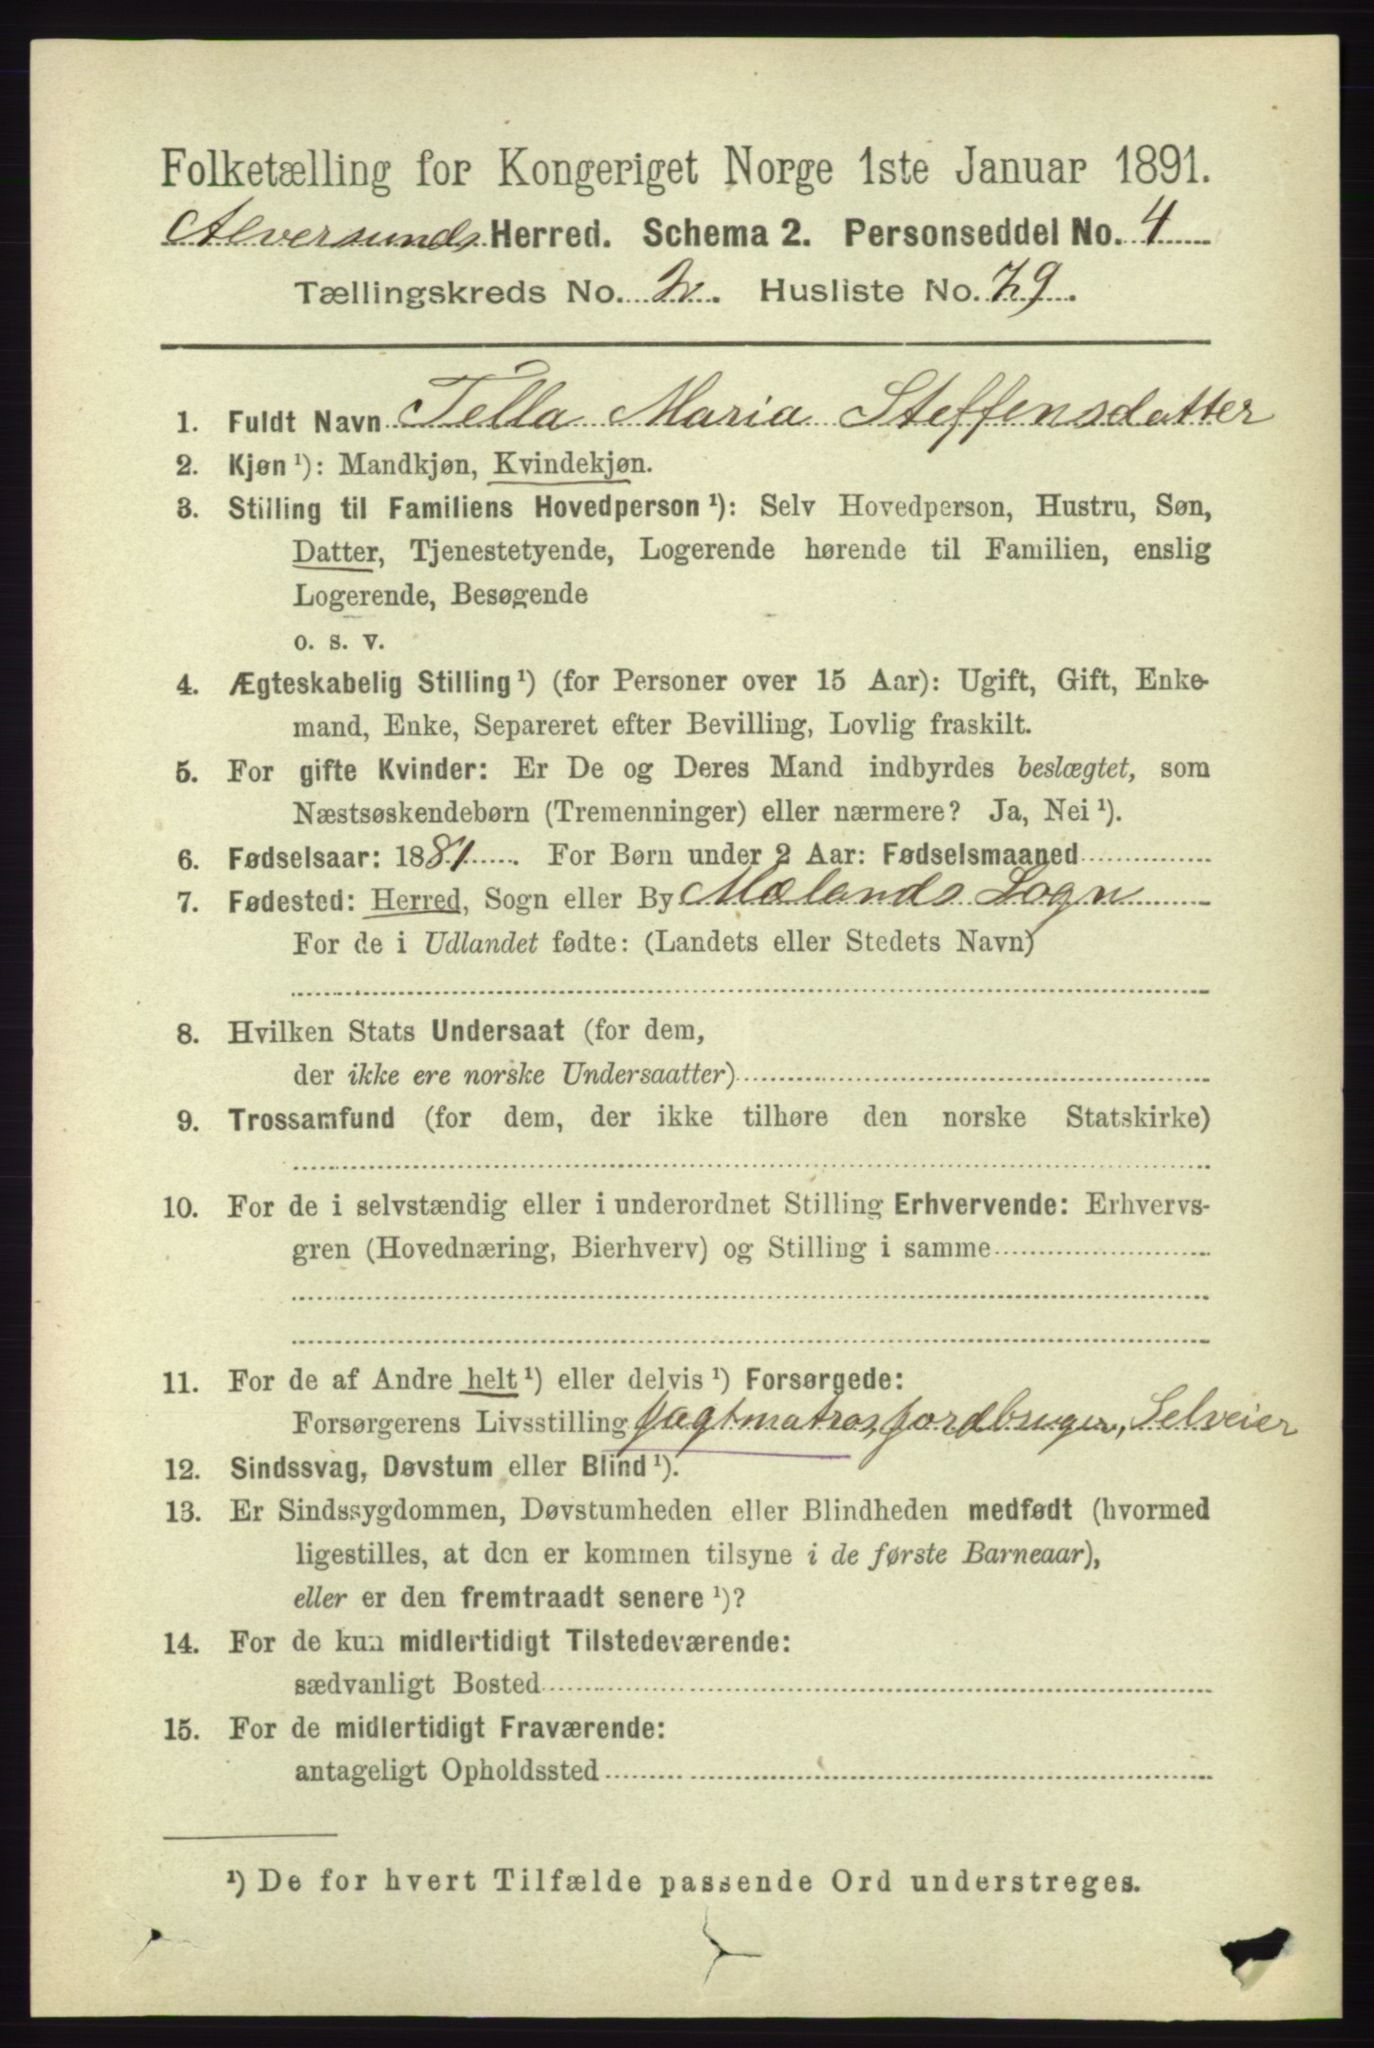 Folketælling for Kongeriget Norge 1ste Januar 1891.
Alversunds Herred. Schema 2. Personseddel No. 4
Tællingskreds No. 2. Husliste No. 79.
1. Fuldt Navn Tella Maria Steffensdatter
2. Kjøn ¹): Mandkjøn, Kvindekjøn.
3. Stilling til Familiens Hovedperson ¹): Selv Hovedperson, Hustru, Søn,
Datter, Tjenestetyende, Logerende hørende til Familien, enslig
Logerende, Besøgende
o. s. v.
4. Ægteskabelig Stilling ¹) (for Personer over 15 Aar): Ugift, Gift, Enke-
mand, Enke, Separeret efter Bevilling, Lovlig fraskilt.
5. For gifte Kvinder: Er De og Deres Mand indbyrdes beslægtet, som
Næstsøskendebørn (Tremenninger) eller nærmere? Ja, Nei ¹).
6. Fødselsaar: 1881. For Børn under 2 Aar: Fødselsmaaned
7. Fødested: Herred, Sogn eller By Mælands Sogn
For de i Udlandet fødte: (Landets eller Stedets Navn)
8. Hvilken Stats Undersaat (for dem,
der ikke ere norske Undersaatter)
9. Trossamfund (for dem, der ikke tilhøre den norske Statskirke)
10. For de i selvstændig eller i underordnet Stilling Erhvervende: Erhvervs-
gren (Hovednæring, Bierhverv) og Stilling i samme
11. For de af Andre helt ¹) eller delvis ¹) Forsørgede:
Forsørgerens Livsstilling Jagtmatros, jordbruger, Selveier
12. Sindssvag, Døvstum eller Blind ¹).
13. Er Sindssygdommen, Døvstumheden eller Blindheden medfødt (hvormed
ligestilles, at den er kommen tilsyne i de første Barneaar),
eller er den fremtraadt senere ¹)?
14. For de kun midlertidigt Tilstedeværende:
sædvanligt Bosted
15. For de midlertidigt Fraværende:
antageligt Opholdssted
¹) De for hvert Tilfælde passende Ord understreges.